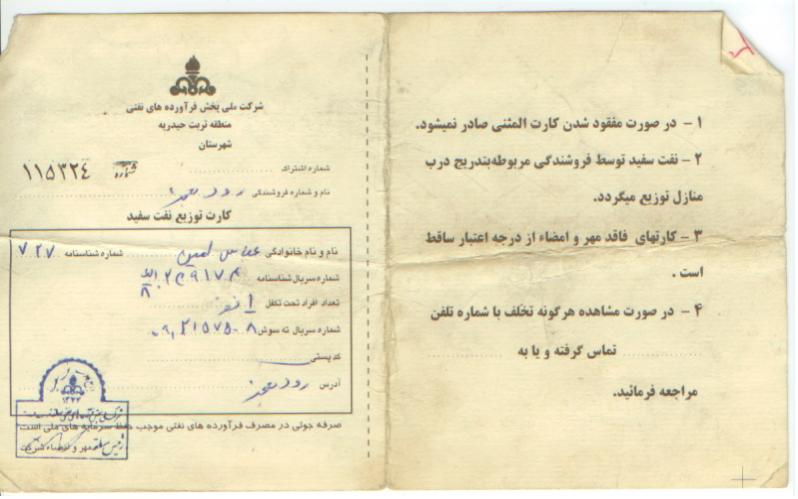 ۱ - در صورت مفقود شدن کارت المثنی صادر نمیشود.
۲ - نفت سفید توسط فروشندگی مربوطه بتدریج درب
منازل توزیع میگردد.
۳ - کارتهای فاقد مهر و امضاء از درجه اعتبار ساقط
است .
۴ - در صورت مشاهده هرگونه تخلف با شماره تلفن
تماس گرفته و یا به
مراجعه فرمائید.
شرکت ملی پخش فرآورده های نفتی
منطقه تربت حیدریه
شهرستان
شماره اشتراک شماره ۱۱۵۳۲۴
نام و شماره فروشندگی رود معجن
کارت توزیع نفت سفید
نام و نام خانوادگی عباس امین شماره شناسنامه ۷۲۷
شماره سریال شناسنامه
تعداد افراد تحت تکفل ۱ نفر
شماره سریال ته سوش
کد پستی
آدرس رود معجن
صرفه جوئی در مصرف فرآورده های نفتی موجب حفظ سرمایه های ملی است
مهر و امضاء شرکت